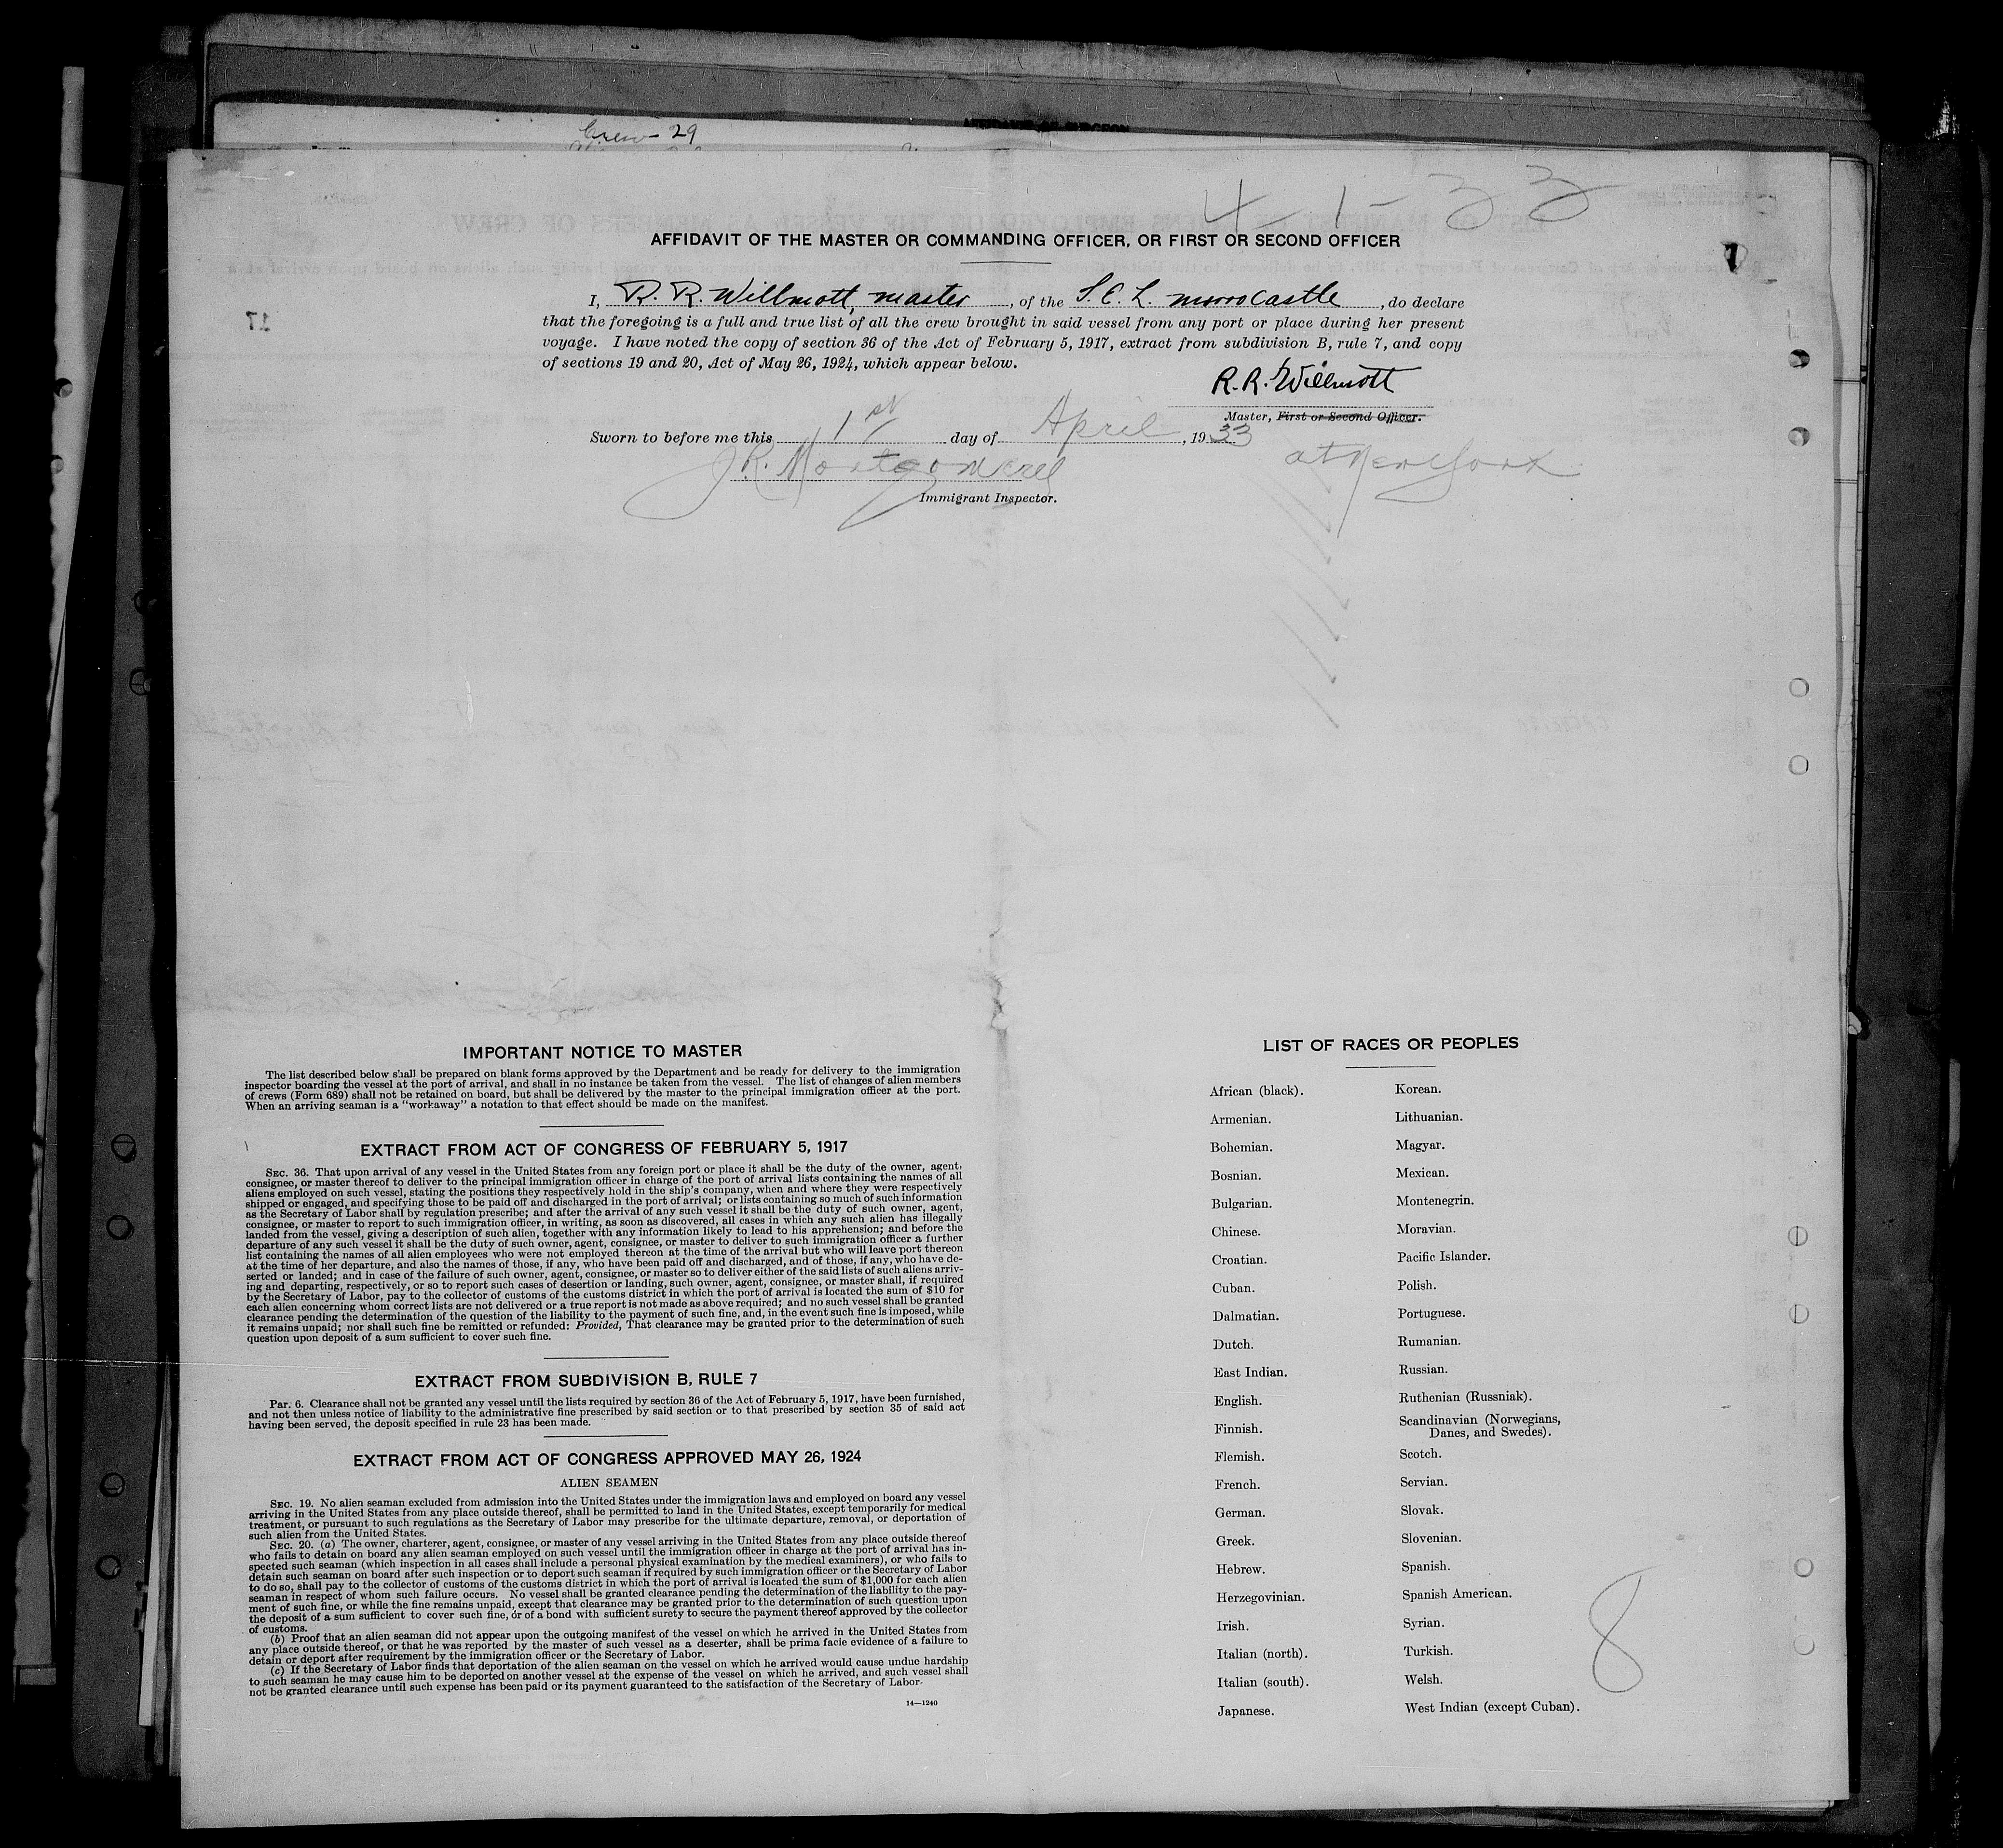 Crew 29
4-1-33
AFFIDAVIT OF THE MASTER OR COMMANDING OFFICER, OR FIRST OR SECOND OFFICER
I, R. R. Willmott, master, of the S.E.L. morrocastle, do declare
that the foregoing is a full and true list of all the crew brought in said vessel from any port or place during her present
voyage. I have noted the copy of section 36 of the Act of February 5, 1917, extract from subdivision B, rule 7, and copy
of sections 19 and 20, Act of May 26, 1924, which appear below.
R. R. Willmott
Master, First or Second Officer.
Sworn to before me this 1st day of April, 1933
J.R. Montgomery at New York
Immigrant Inspector.
IMPORTANT NOTICE TO MASTER
The list described below shall be prepared on blank forms approved by the Department and be ready for delivery to the immigration
inspector boarding the vessel at the port of arrival, and shall in no instance be taken from the vessel. The list of changes of alien members
of crews (Form 689) shall not be retained on board, but shall be delivered by the master to the principal immigration officer at the port.
When an arriving seaman is a "workaway" a notation to that effect should be made on the manifest.
EXTRACT FROM ACT OF CONGRESS OF FEBRUARY 5, 1917
SEC. 36. That upon arrival of any vessel in the United States from any foreign port or place it shall be the duty of the owner, agent,
consignee, or master thereof to deliver to the principal immigration officer in charge of the port of arrival lists containing the names of all
aliens employed on such vessel, stating the positions they respectively hold in the ship's company, when and where they were respectively
shipped or engaged, and specifying those to be paid off and discharged in the port of arrival; or lists containing so much of such information
as the Secretary of Labor shall by regulation prescribe; and after the arrival of any such vessel it shall be the duty of such owner, agent,
consignee, or master to report to such immigration officer, in writing, as soon as discovered, all cases in which any such alien has illegally
landed from the vessel, giving a description of such alien, together with any information likely to lead to his apprehension; and before the
departure of any such vessel it shall be the duty of such owner, agent, consignee, or master to deliver to such immigration officer a further
list containing the names of all alien employees who were not employed thereon at the time of the arrival but who will leave port thereon
at the time of her departure, and also the names of those, if any, who have been paid off and discharged, and of those, if any, who have de-
serted or landed; and in case of the failure of such owner, agent, consignee, or master so to deliver either of the said lists of such aliens arriv-
ing and departing, respectively, or so to report such cases of desertion or landing, such owner, agent, consignee, or master shall, if required
by the Secretary of Labor, pay to the collector of customs of the customs district in which the port of arrival is located the sum of $10 for
each alien concerning whom correct lists are not delivered or a true report is not made as above required; and no such vessel shall be granted
clearance pending the determination of the question of the liability to the payment of such fine, and, in the event such fine is imposed, while
it remains unpaid; nor shall such fine be remitted or refunded: Provided, That clearance may be granted prior to the determination of such
question upon deposit of a sum sufficient to cover such fine.
EXTRACT FROM SUBDIVISION B, RULE 7
Par. 6. Clearance shall not be granted any vessel until the lists required by section 36 of the Act of February 5, 1917, have been furnished,
and not then unless notice of liability to the administrative fine prescribed by said section or to that prescribed by section 35 of said act
having been served, the deposit specified in rule 23 has been made.
EXTRACT FROM ACT OF CONGRESS APPROVED MAY 26, 1924
ALIEN SEAMEN
SEC. 19. No alien seaman excluded from admission into the United States under the immigration laws and employed on board any vessel
arriving in the United States from any place outside thereof, shall be permitted to land in the United States, except temporarily for medical
treatment, or pursuant to such regulations as the Secretary of Labor may prescribe for the ultimate departure, removal, or deportation of
such alien from the United States.
SEC. 20. (a) The owner, charterer, agent, consignee, or master of any vessel arriving in the United States from any place outside thereof
who fails to detain on board any alien seaman employed on such vessel until the immigration officer in charge at the port of arrival has in-
spected such seaman (which inspection in all cases shall include a personal physical examination by the medical examiners), or who fails to
detain such seaman on board after such inspection or to deport such seaman if required by such immigration officer or the Secretary of Labor
to do so, shall pay to the collector of customs of the customs district in which the port of arrival is located the sum of $1,000 for each alien
seaman in respect of whom such failure occurs. No vessel shall be granted clearance pending the determination of the liability to the pay-
ment of such fine, or while the fine remains unpaid, except that clearance may be granted prior to the determination of such question upon
the deposit of a sum sufficient to cover such fine, or of a bond with sufficient surety to secure the payment thereof approved by the collector
of customs.
(b) Proof that an alien seaman did not appear upon the outgoing manifest of the vessel on which he arrived in the United States from
any place outside thereof, or that he was reported by the master of such vessel as a deserter, shall be prima facie evidence of a failure to
detain or deport after requirement by the immigration officer or the Secretary of Labor.
(c) If the Secretary of Labor finds that deportation of the alien seaman on the vessel on which he arrived would cause undue hardship
to such seaman he may cause him to be deported on another vessel at the expense of the vessel on which he arrived, and such vessel shall
not be granted clearance until such expense has been paid or its payment guaranteed to the satisfaction of the Secretary of Labor.
14—1240
LIST OF RACES OR PEOPLES
African (black).
Armenian.
Bohemian.
Bosnian.
Bulgarian.
Chinese.
Croatian.
Cuban.
Dalmatian.
Dutch.
East Indian.
English.
Finnish.
Flemish.
French.
German.
Greek.
Hebrew.
Herzegovinian.
Irish.
Italian (north).
Italian (south).
Japanese.
Korean.
Lithuanian.
Magyar.
Mexican.
Montenegrin.
Moravian.
Pacific Islander.
Polish.
Portuguese.
Rumanian.
Russian.
Ruthenian (Russniak).
Scandinavian (Norwegians,
Danes, and Swedes).
Scotch.
Servian.
Slovak.
Slovenian.
Spanish.
Spanish American.
Syrian.
Turkish.
Welsh.
West Indian (except Cuban).
8